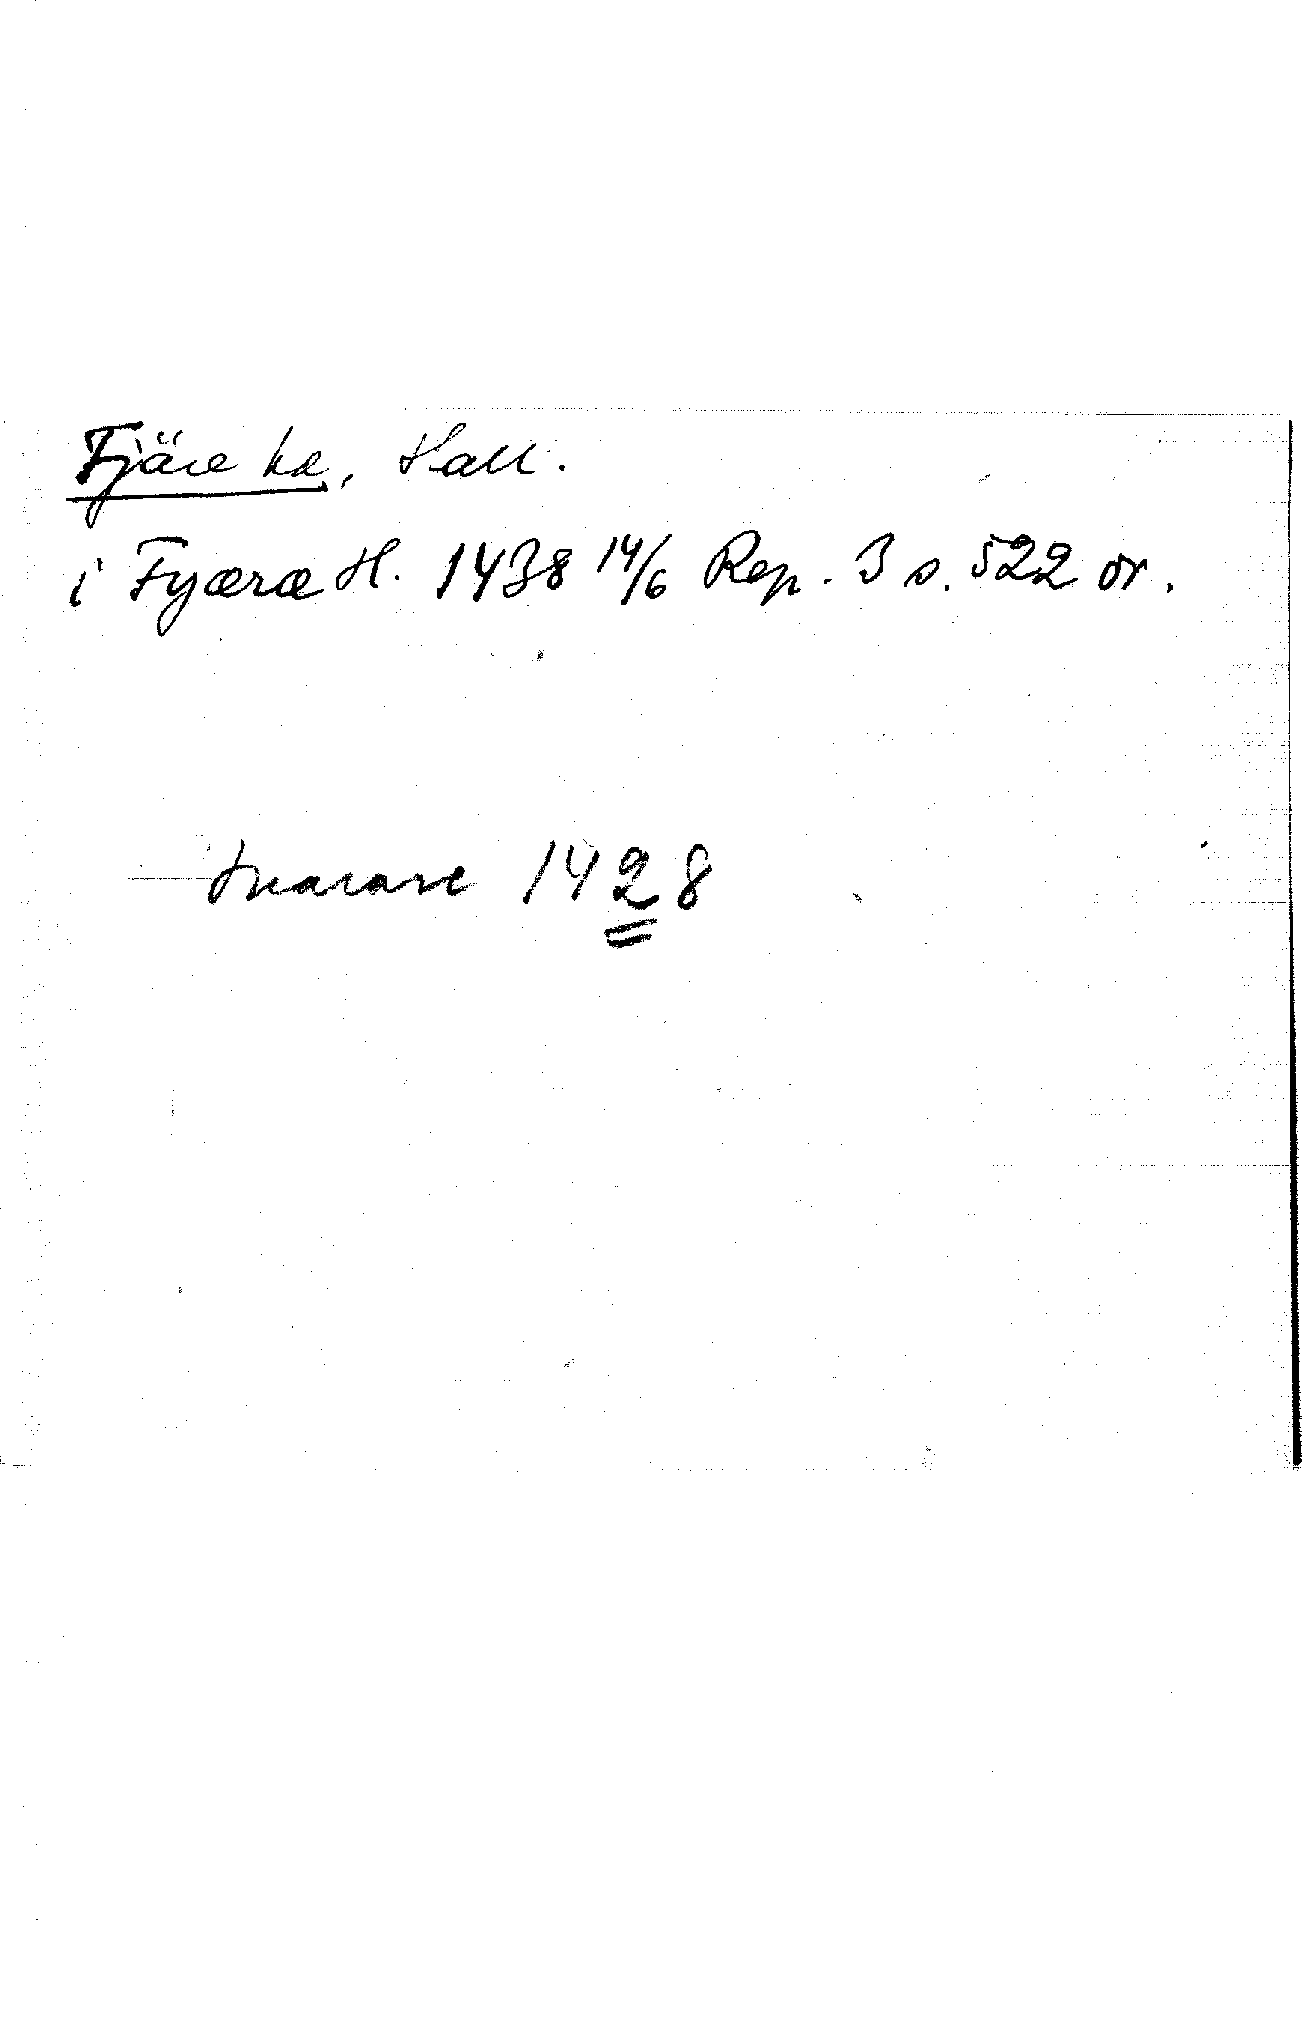 Fjäre hd, Hall.
i Fyæræ H. 1438 14/6 Rep. 3 s. 522 or.
snarare 1428